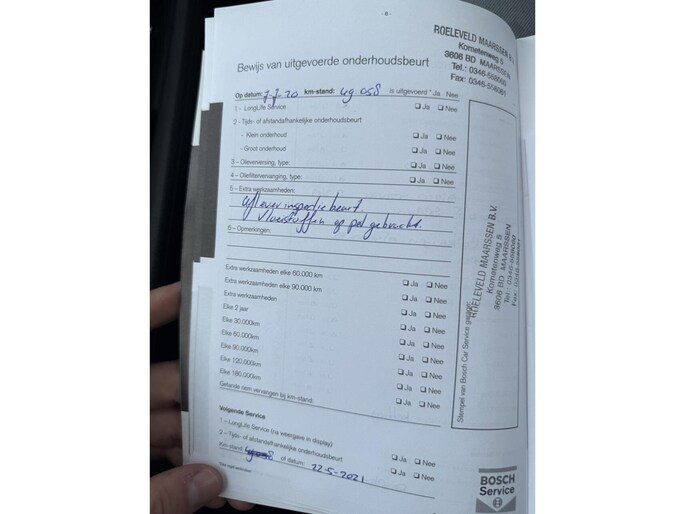 - 8 -
Bewijs van uitgevoerde onderhoudsbeurt
Op datum: 7-7-20 km-stand: 49.058 is uitgevoerd * Ja Nee
1 – LongLife Service ❑ Ja ❑ Nee
2 - Tijds- of afstandafhankelijke onderhoudsbeurt
– Klein onderhoud ❑ Ja ❑ Nee
- Groot onderhoud ❑ Ja ❑ Nee
3 – Olieverversing, type: ❑ Ja ❑ Nee
4 – Oliefiltervervanging, type: ❑ Ja ❑ Nee
5 – Extra werkzaamheden:
Afleverinspectie beurt.
Vloeistoffen op peil gebracht.
6 – Opmerkingen:
Extra werkzaamheden elke 60.000 km ❑ Ja ❑ Nee
Extra werkzaamheden elke 90.000 km ❑ Ja ❑ Nee
Extra werkzaamheden ❑ Ja ❑ Nee
Elke 2 jaar ❑ Ja ❑ Nee
Elke 30.000km ❑ Ja ❑ Nee
Elke 60.000km ❑ Ja ❑ Nee
Elke 90.000km ❑ Ja ❑ Nee
Elke 120.000km ❑ Ja ❑ Nee
Elke 180.000km ❑ Ja ❑ Nee
Getande riem vervangen bij km-stand: ❑ Ja ❑ Nee
Volgende Service
1 – LongLife Service (na weergave in display) ❑ Ja ❑ Nee
2 – Tijds- of afstandafhankelijke onderhoudsbeurt ❑ Ja ❑ Nee
Km-stand of datum: 22-5-2021
ROELEVELD MAARSSEN B.V.
Kometenweg 5
3606 BD MAARSSEN
Tel.: 0346-558060
Fax: 0346-558061
Stempel van Bosch Car Service garage:
ROELEVELD MAARSSEN B.V.
Kometenweg 5
3606 BD MAARSSEN
Tel.: 0346-558060
Fax: 0346-558061
BOSCH
Service